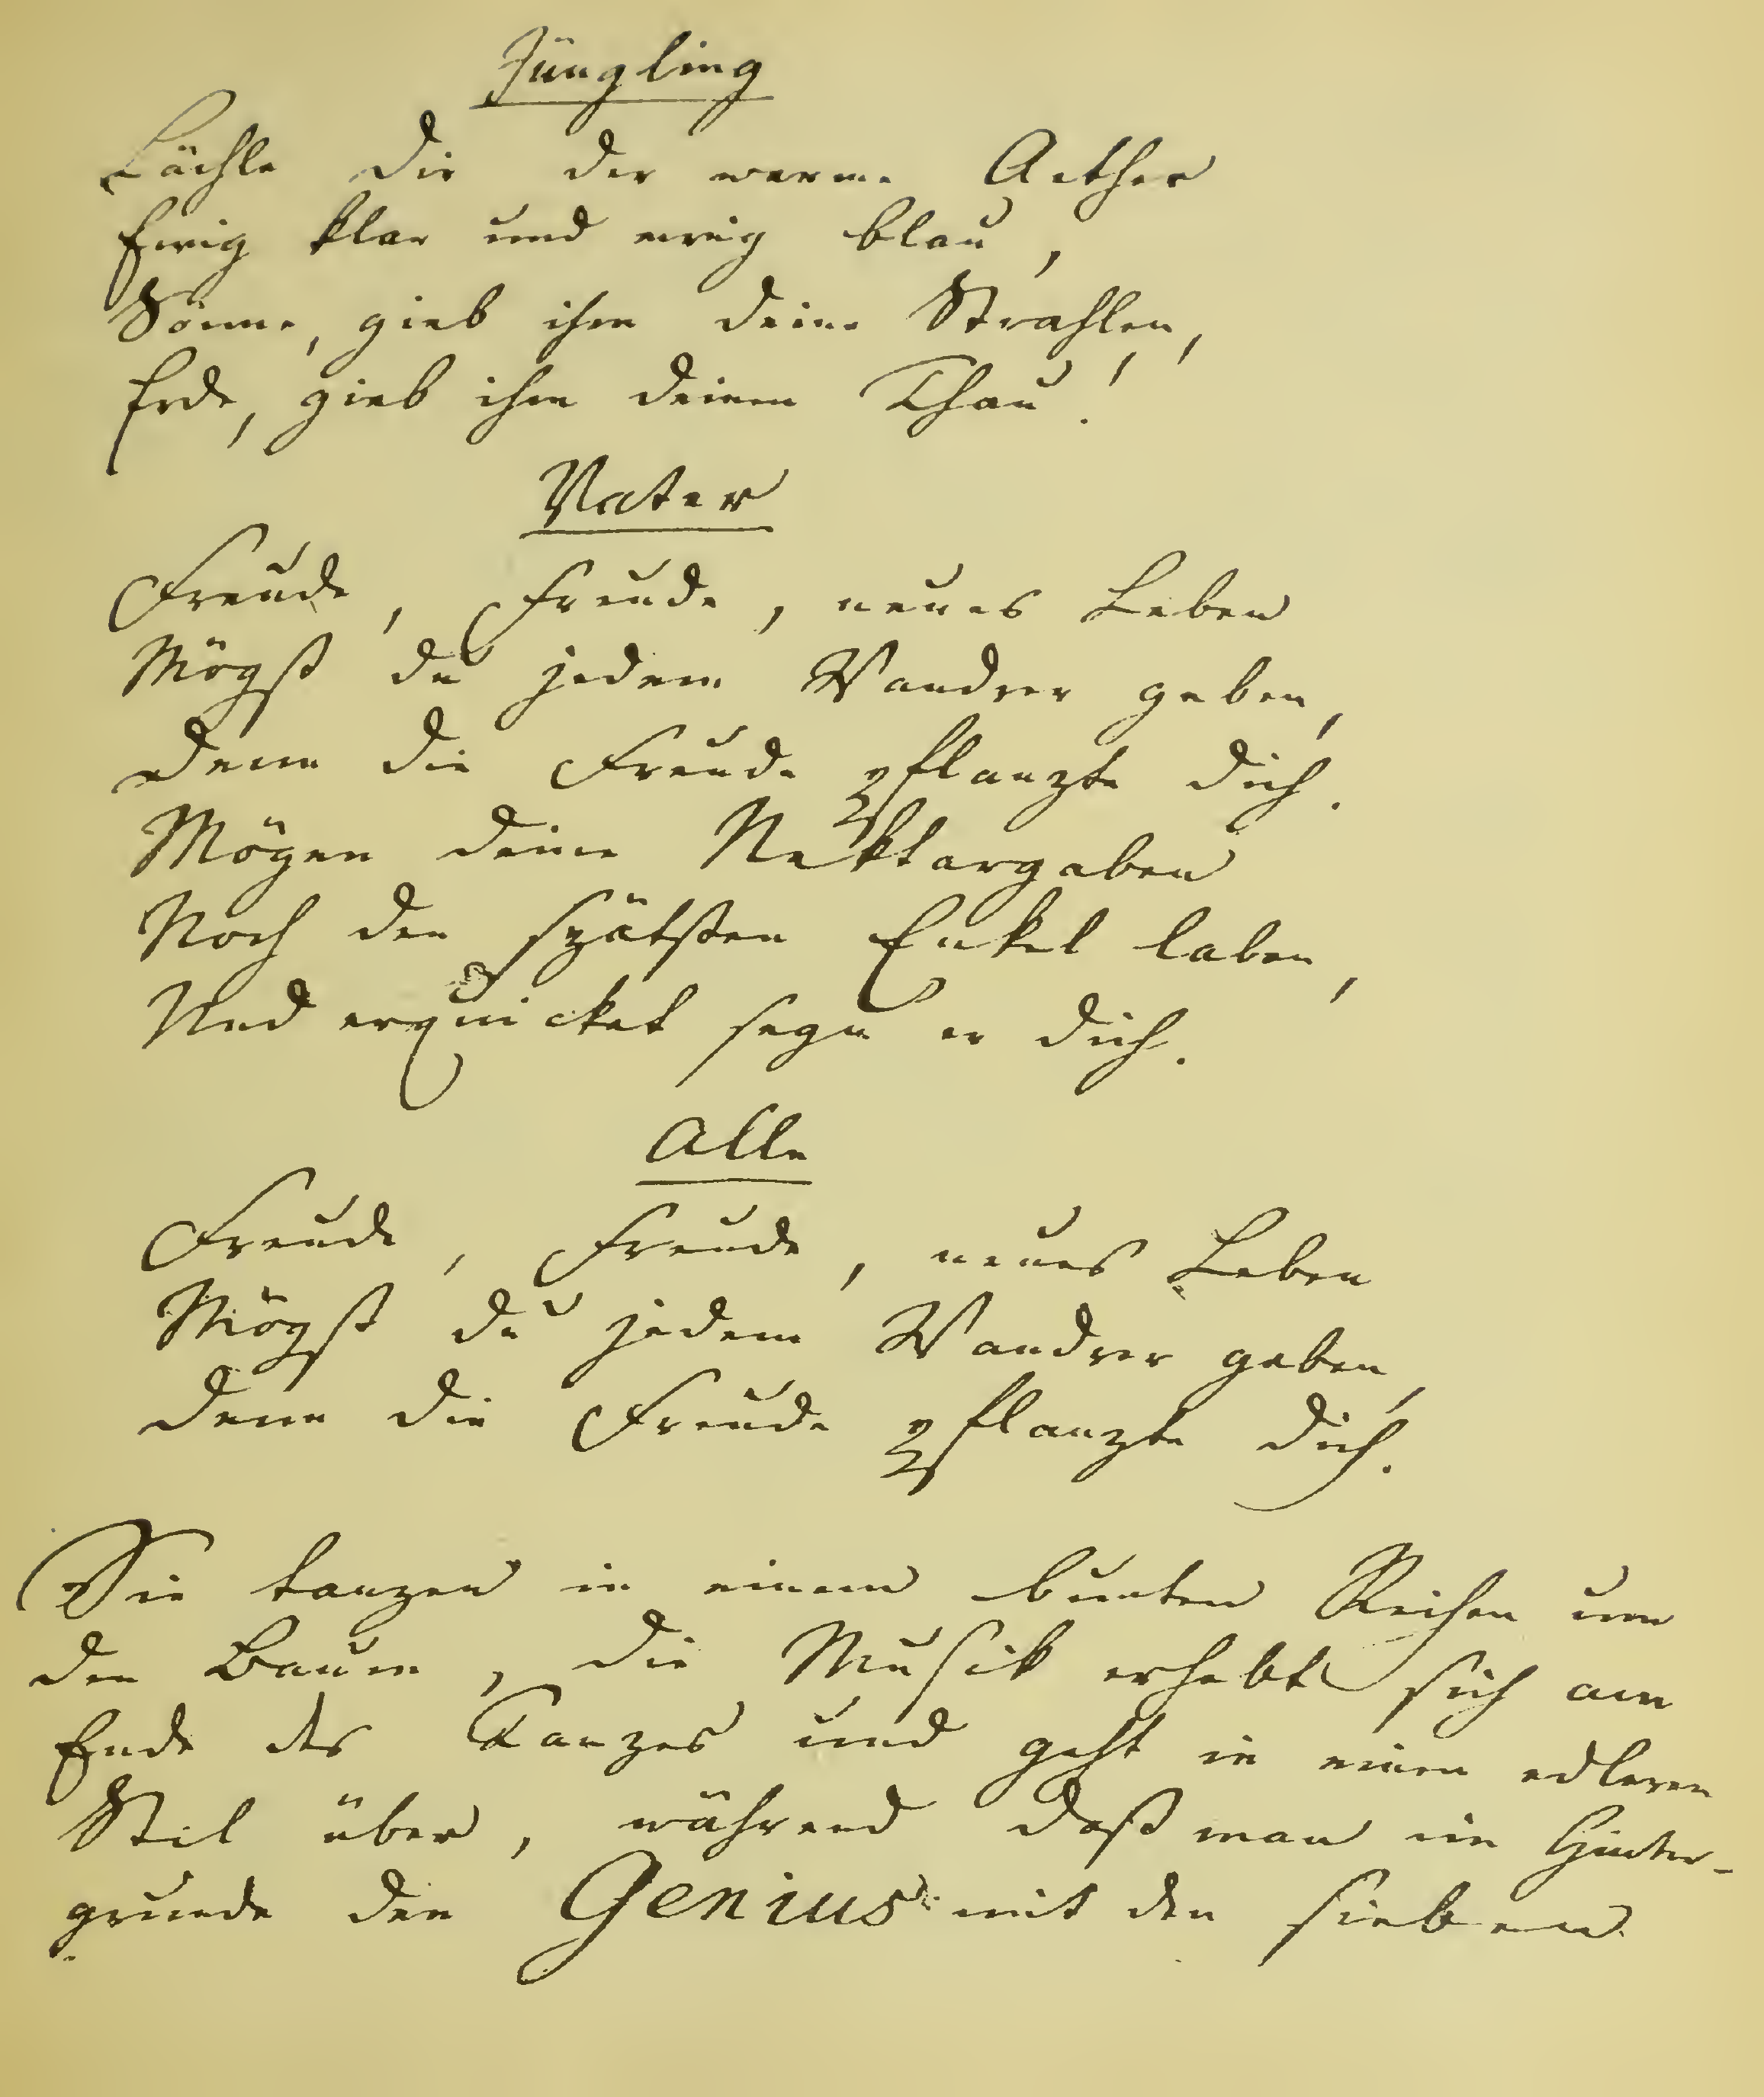 Jüngling
Lächle dir der warme Aether
Ewig klar und ewig blau,
Sonne, gieb ihm deine Strahlen,
Erde, gieb ihm deinen Thau!
Vater
Freude, Freude, neues Leben
Mögst du jedem Wandrer geben,
Denn die Freude pflanzte dich.
Mögen deine Nektargaben
Noch den spätsten Enkel laben,
Und erquicket segn er dich.
Alle
Freude, Freude, neues Leben
Mögst du jedem Wandrer geben,
Denn die Freude pflanzte dich.
Sie tanzen in einem bunten Reihen um
den Baum, die Musik erhebt sich am
Ende des Tanzes und geht in einen edleren
Stil über, während daß man im Hinter-
grunde den Genius mit den sieben